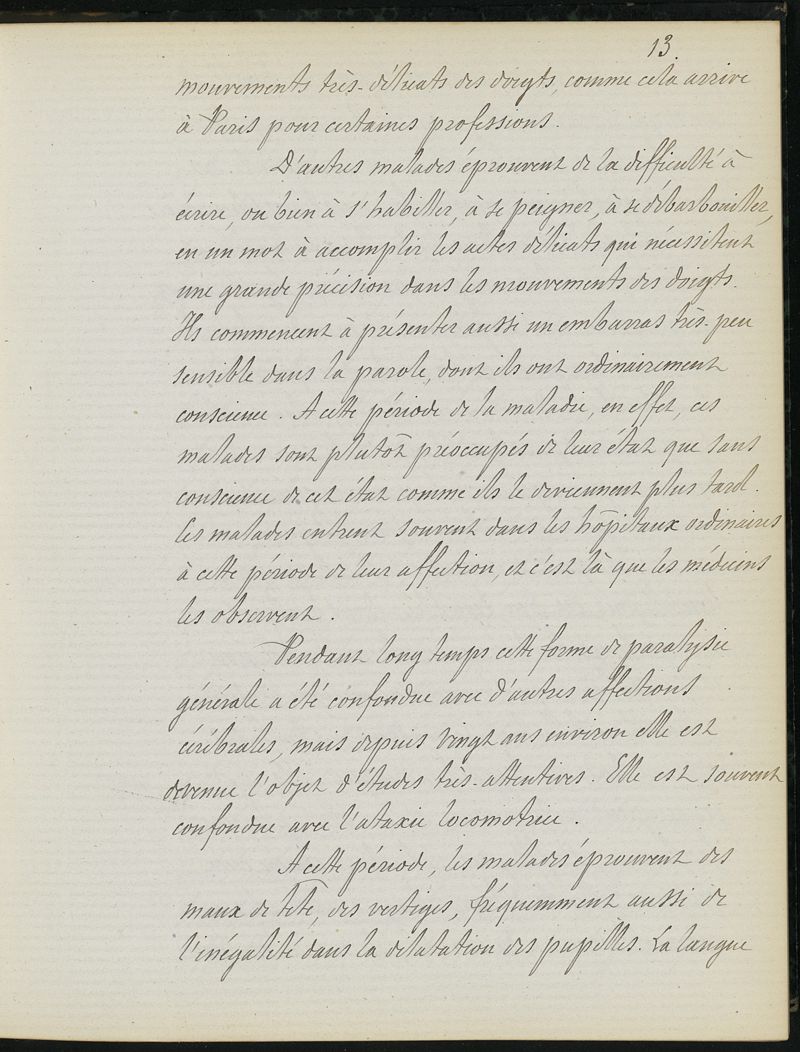 13.
mouvements très-délicats des doigts, comme cela arrive
à Paris pour certaines professions.
D'autres malades éprouvent de la difficulté à
écrire, ou bien à s'habiller, à se peigner, à se débarbouiller,
en un mot à accomplir les actes délicats qui nécessitent
une grande précision dans les mouvements des doigts.
Ils commencent à présenter aussi un embarras très-peu
sensible dans la parole, dont ils ont ordinairement
conscience. A cette période de la maladie, en effet, ces
malades sont plutôt préoccupés de leur état que sans
conscience de cet état comme ils le deviennent plus tard.
Ces malades entrent souvent dans les hôpitaux ordinaires
à cette période de leur affection, et c'est là que les médecins
les observent.
Pendant long temps cette forme de paralysie
générale a été confondue avec d'autres affections
cérébrales, mais depuis vingt ans environ elle est
devenue l'objet d'études très-attentives. Elle est souvent
confondue avec l'ataxie locomotrice.
A cette période, les malades éprouvent des
maux de tête, des vertiges, fréquemment aussi de
l'inégalité dans la dilatation des pupilles. La langue